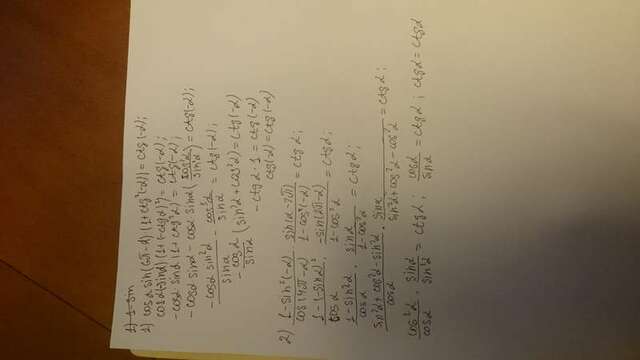 1) 1-sin
1) cosα sin(6π-α) (1+ctg²(-α)) = ctg(-α);
cosα(-sinα) (1+(-ctgα)²) = ctg(-α);
-cosα sinα (1+ctg²α) = ctg(-α);
-cosα sinα - cosα sinα (cos²α/sin²α) = ctg(-α);
-cosα sin²α/sinα - cos³α/sinα = ctg(-α);
-cosα/sinα (sin²α+cos²α) = ctg(-α)
-ctgα · 1 = ctg(-α)
ctg(-α) = ctg(-α)
2) 1-sin²(-α)/cos(4π-α) · sin(α-2π)/1-cos²(-α) = ctgα;
1-(-sinα)²/cosα · -sin(2π-α)/1-cos²α = ctgα;
1-sin²α/cosα · sinα/1-cos²α = ctgα;
sin²α+cos²α-sin²α/cosα · sinα/sin²α+cos²α-cos²α = ctgα;
cos²α/cosα · sinα/sin²α = ctgα; cosα/sinα = ctgα; ctgα = ctgα